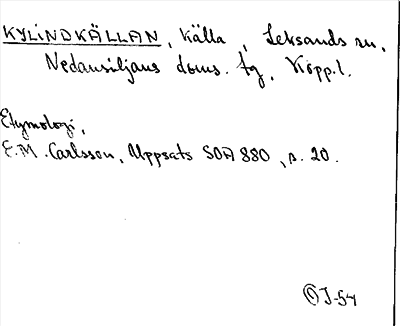 KYLINDKÄLLAN, källa, Leksands sn,
Nedansiljans doms. tg, Kopp.l.
Etymologi,
E.M. Carlsson, Uppsats SOA 880, s. 20.
J-54